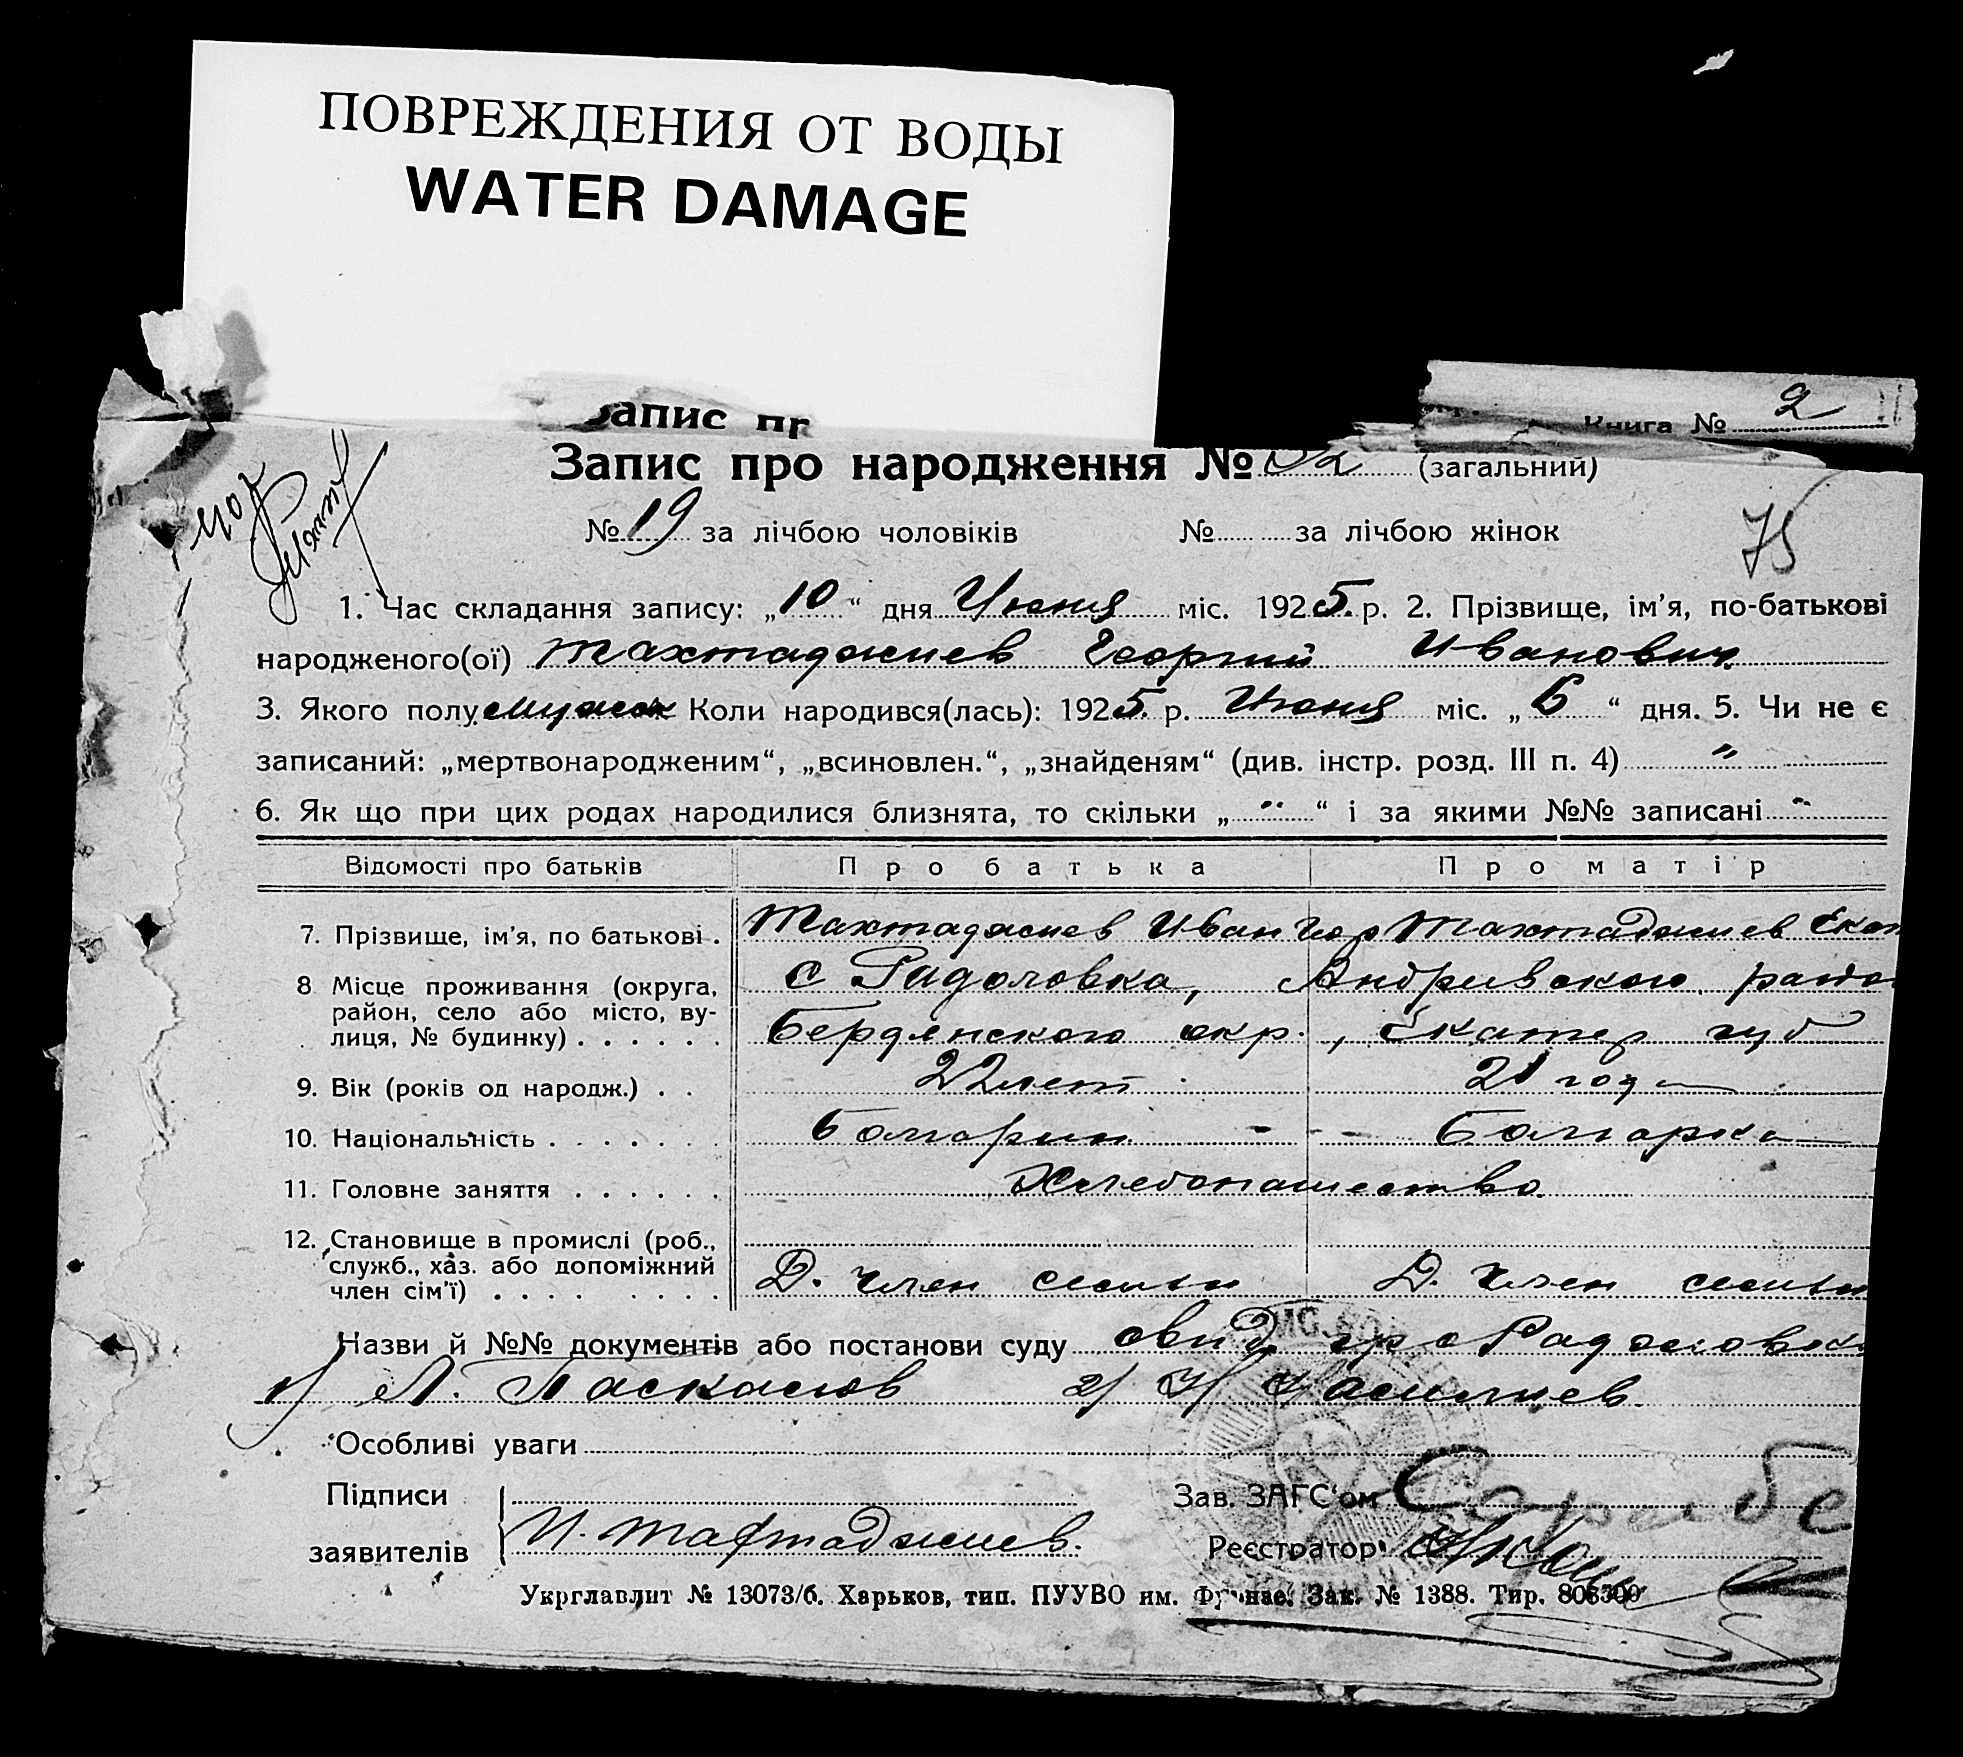 ПОВРЕЖДЕНИЯ ОТ ВОДЫ
WATER DAMAGE
Запис пр
Книга № 2
Запис про народження № 32 (загальний)
№ 19 за лічбою чоловіків № за лічбою жінок
75
1. Час складання запису: „10“ дня Июня міс. 1925. р. 2. Прізвище, ім'я, по-батькові
народженого(ої) Тахтаджиев Георгий Иванович
3. Якого полу мужск Коли народився(лась): 1925. р. Июня міс. „6“ дня. 5. Чи не є
записаний: „мертвонародженим“, „всиновлен.“, „знайденям“ (див. інстр. розд. III п. 4) "
6. Як що при цих родах народилися близнята, то скільки „ " “ і за якими №№ записані "
Відомості про батьків Про батька Про матір
7. Прізвище, ім'я, по батькові. Тахтаджиев Иван Геор Тахтаджиев Екат
8 Місце проживання (округа, район, село або місто, вулиця, № будинку) с Радоловка, Андривского райо
Бердянского окр., Екатер губ
9. Вік (років од народж.) . . 22 лет 21 год
10. Національність Болгарин - - - Болгарка
11. Головне заняття Хлебопашество
12. Становище в промислі (роб., служб., хаз. або допоміжний член сім'ї) Д. член семьи Д. член семьи
Назви й №№ документів або постанови суду свид. гр с Радоловк
1) Л. Паскалов 2) Василиев
Особливі уваги
Підписи Зав. ЗАГС'ом
заявителів И. Тахтаджиев. Реєстратор
Укрглавлит № 13073/б. Харьков, тип. ПУУВО им. Фрунзе. Зак. № 1388. Тир.